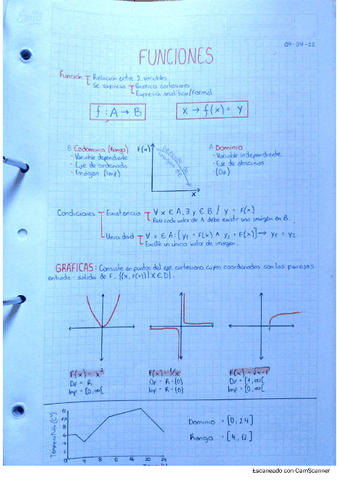 04-04-22
FUNCIONES
Función - Relación entre 2 variables
Se expresa - Gráfica cartesiana
Expresión analítica/formal
f: A → B
x → f(x) = y
B Codominio (Rango)
- Variable dependiente
- Eje de ordenada
- Imágen (Imf)
F(x)
x
A Dominio
- Variable independiente
- Eje de abscisas
- (Df)
Condiciones - Existencia - ∀ x ∈ A, ∃ y ∈ B / y = F(x)
Para cada valor de A debe existir una imágen en B.
Unicidad - ∀ x ∈ A: (y₁ = F(x) ∧ y₂ = F(x)) → y₁ = y₂
Existe un único valor de imagen.
GRÁFICAS: Consiste en puntos del eje cartesiano cuyas coordenadas son las parejas
entrada - salida de F = {(x, F(x)) | x ∈ D}.
F(x) = x²
Df = R
Imf = [0, ∞[
F(x) = 1/x
Df = R - {0}
Imf = R - {0}
Df = [1, ∞[
Imf = [0, ∞[
Temperatura (C°)
Dominio = [0, 24]
Rango = [4, 12]
Escaneado con CamScanner